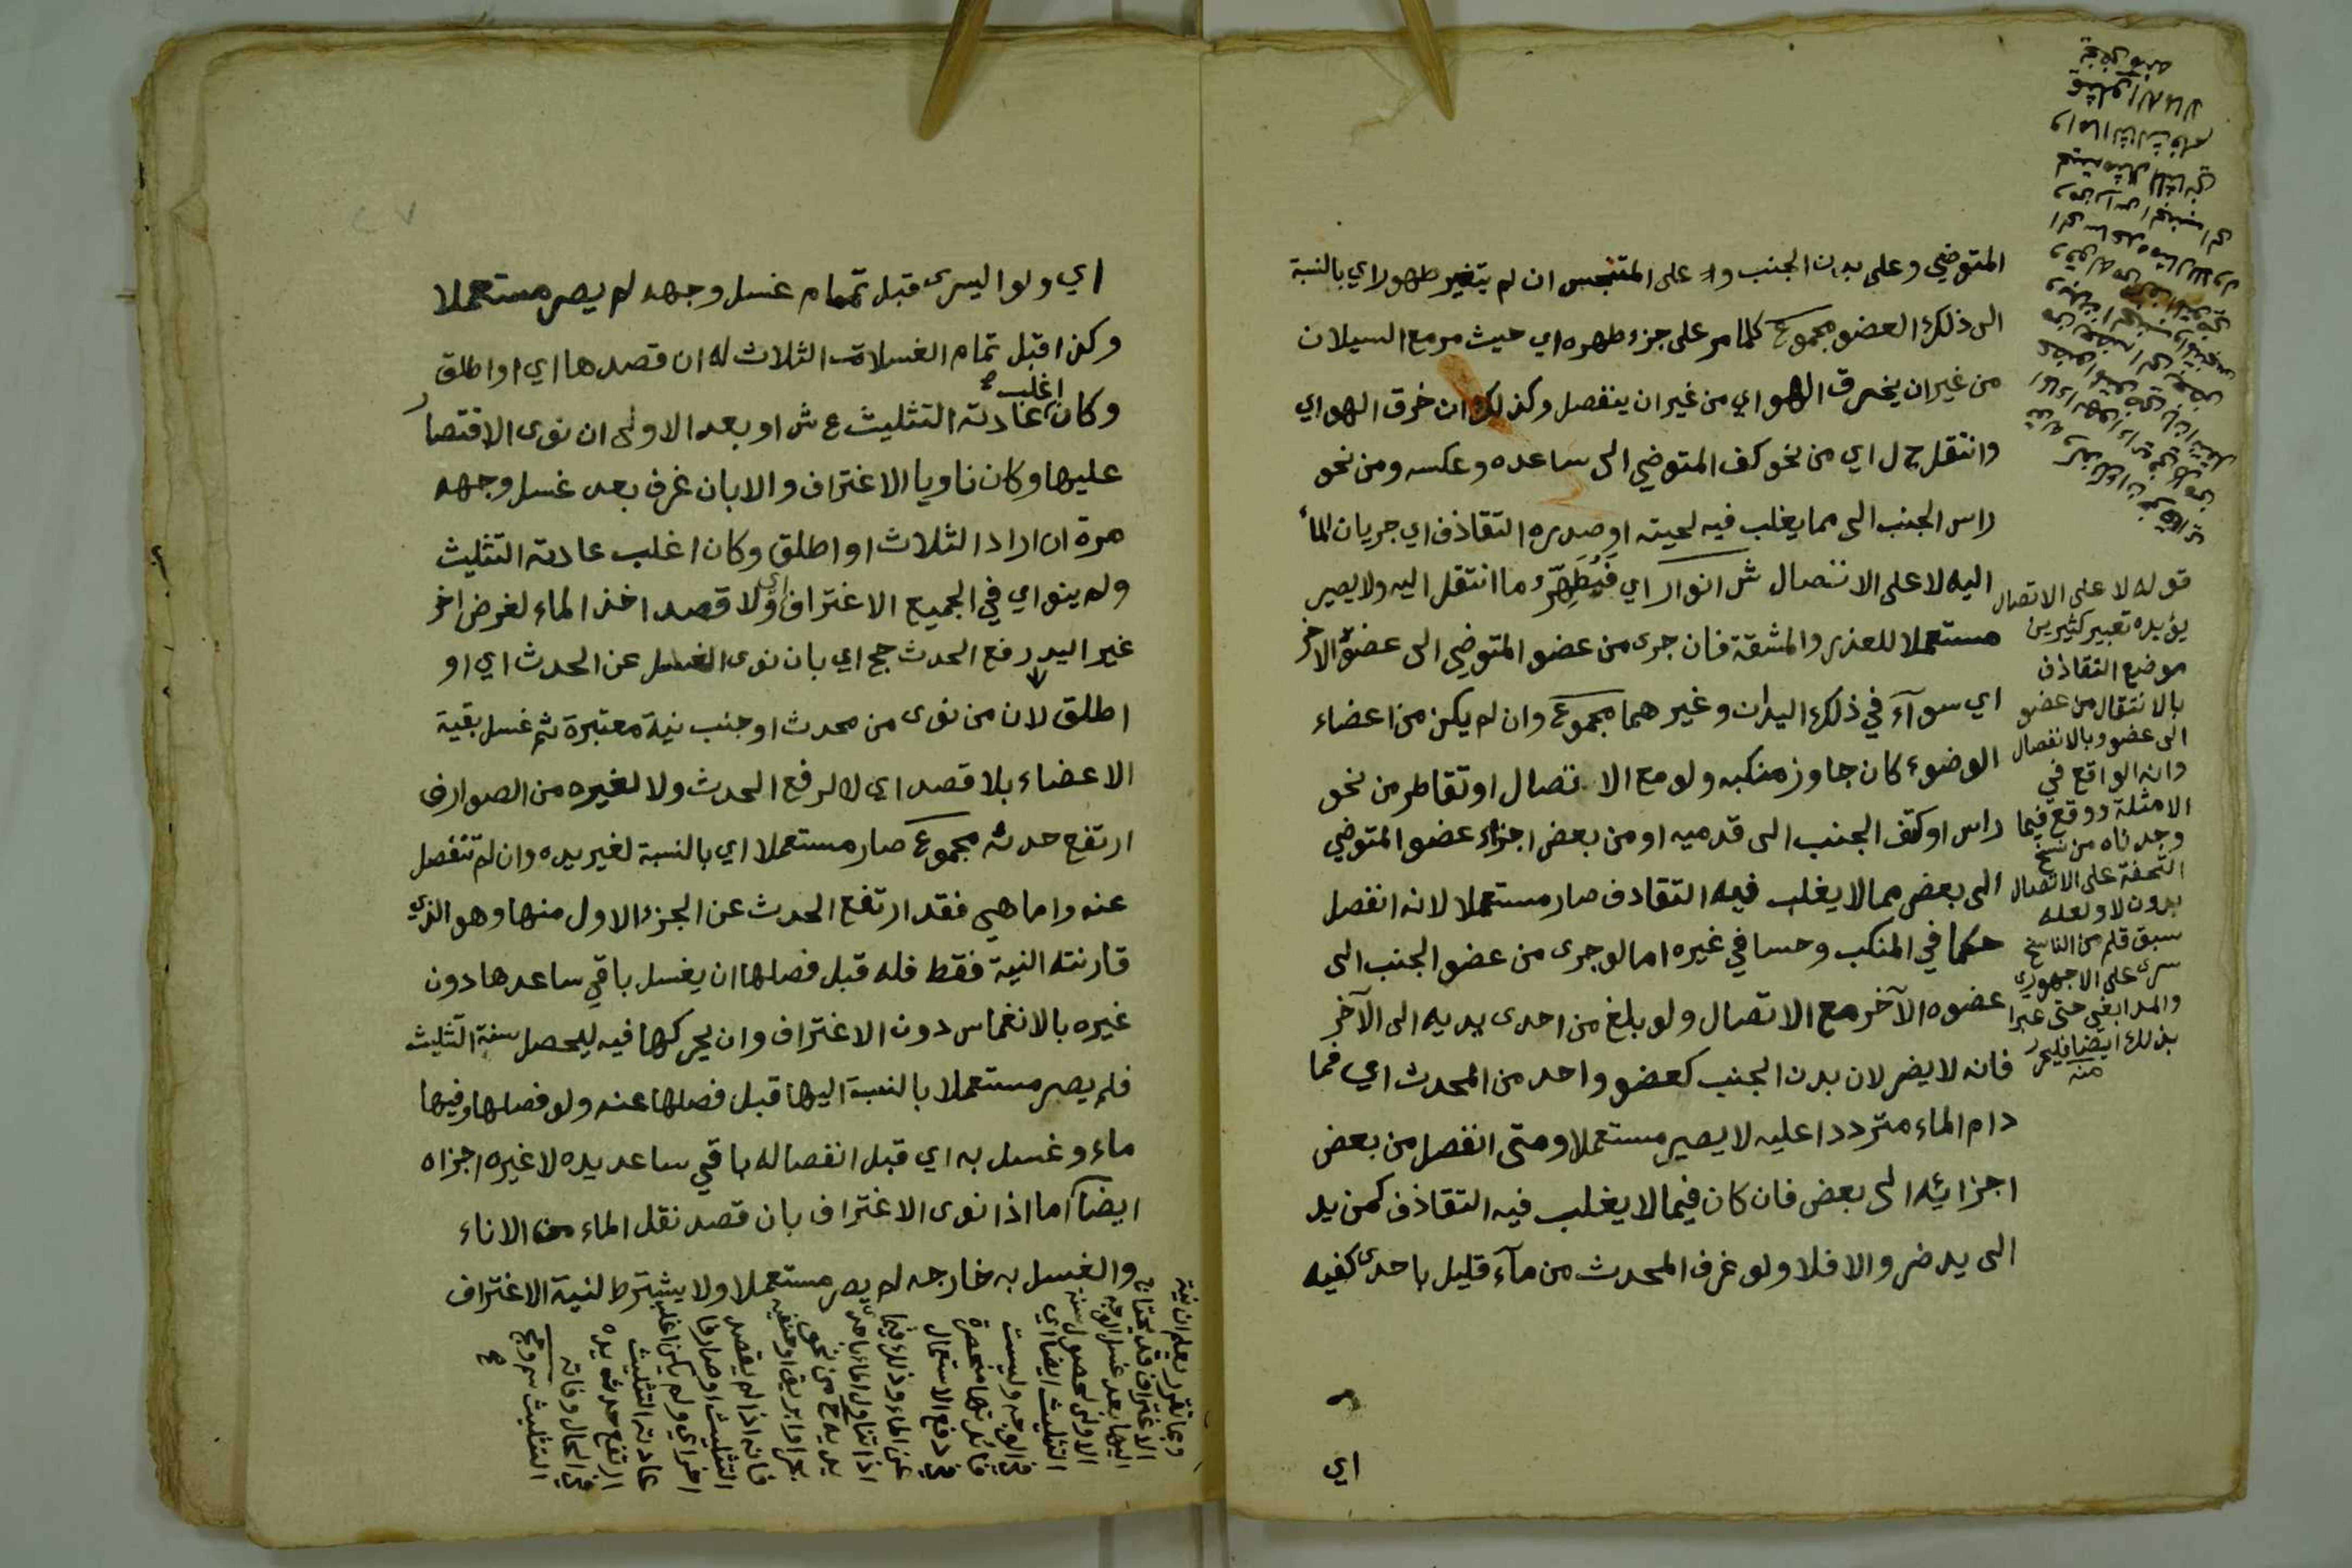 المتوضي وعلى بدن الجنب وا على المتنجس ان لم يتغير طهور اي بالنسبة
الى ذلك العضو مجموع كلما مر على جزء طهره اي حيث مر مع السيلان
من غير ان يخرق الهواي من غير ان ينفصل وكذلك ان خرق الهواي
وانتقل ج ل اي من نحو كف المتوضي الى ساعده وعكسه ومن نحو
راس الجنب الى مما يغلب فيه لحيته او صدره التقاذف اي جريان الماء
اليه لا على الاتصال ش انوار اي فيُطَهِّرُ ما انتقل اليه ولا يصير
مستعملا للعذر والمشقة فان جرى من عضو المتوضي الى عضوه الاخر
اي سوآء في ذلك اليدان وغيرهما مجموع وان لم يكن من اعضاء
الوضوء كان جاوز منكبه ولو مع الاتصال او تقاطر من نحو
راس او كتف الجنب الى قدميه او من بعض اجزاء عضو المتوضي
الى بعض مما لا يغلب فيه التقاذف صار مستعملا لانه انفصل
حكما في المنكب وحسا في غيره اما لو جرى من عضو الجنب الى
عضوه الآخر مع الاتصال ولو بلغ من احدى يديه الى الآخر
فانه لا يضر لان بدن الجنب كعضو واحد من المحدث اي فما
دام الماء مترددا عليه لا يصير مستعملا ومتى انفصل من بعض
اجزائه الى بعض فان كان فيما لا يغلب فيه التقاذف كمن يد
الى يد ضر والا فلا ولو غرف المحدث من مآء قليل باحدى كفيه
اي
قوله لا على الاتصال
يؤيده تعبير كثيرين
موضع التقاذف
بالانتقال من عضو
الى عضو وبالانفصال
وانه الواقع في
الامثلة ووقع فيما
وجدناه من نسخ
التحفة على الاتصال
بدون لا ولعله
سبق قلم من الناسخ
سرى على الاجهوري
والمدابغي حتى عبرا
بذلك ايضا فليحرر
منه
اي ولو اليسرى قبل تمام غسل وجهه لم يصر مستعملا
وكذا قبل تمام الغسلات الثلاث له ان قصدها اي او اطلق
وكان اغلب عادته التثليث ع ش او بعد الاولى ان نوى الاقتصار
عليها وكان ناويا الاغتراف والا بان غرف بعد غسل وجهه
مرة ان اراد الثلاث او اطلق وكان اغلب عادته التثليث
ولم ينو اي في الجميع الاغتراف اي ولا قصد اخذ الماء لغرض اخر
غير اليد رفع الحدث حج اي بان نوى الغسل عن الحدث اي او
اطلق لان من نوى من محدث او جنب نية معتبرة ثم غسل بقية
الاعضاء بلا قصد اي لا لرفع الحدث ولا لغيره من الصوارف
ارتفع حدثه مجموع صار مستعملا اي بالنسبة لغير يده وان لم تنفصل
عنه واما هي فقد ارتفع الحدث عن الجزء الاول منها وهو الذي
قارنته النية فقط فله قبل فصلها ان يغسل باقي ساعدها دون
غيره بالانغماس دون الاغتراف وان يحركها فيه ليحصل سنة التثليث
فلم يصر مستعملا بالنسبة اليها قبل فصلها عنه ولو فصلها وفيها
ماء وغسل به اي قبل انفصاله باقي ساعد يده لا غيره اجزاه
ايضا اما اذا نوى الاغتراف بان قصد نقل الماء من الاناء
والغسل به خارجه لم يصر مستعملا ولا يشترط لنية الاغتراف
وبما تقرر يعلم ان نية
الاغتراف قد يحتاج
اليها بعد غسل الوجه
الاولى لحصول سنة
التثليث ايضا اي
في الوجه وليست
فائدتها منحصرة
في دفع الاستعمال
عن الماء وذلك فيما
اذا تناول الماء باحدى
يديه ج من نحو
بحر او ابريق او حنفيه
فانه اذا لم يقصد
التثليث او صارفا
اخر اي ولم يكن اغلب
عادته التثليث
ارتفع حدث يده
في الحال وفاته
التثليث سم وحج